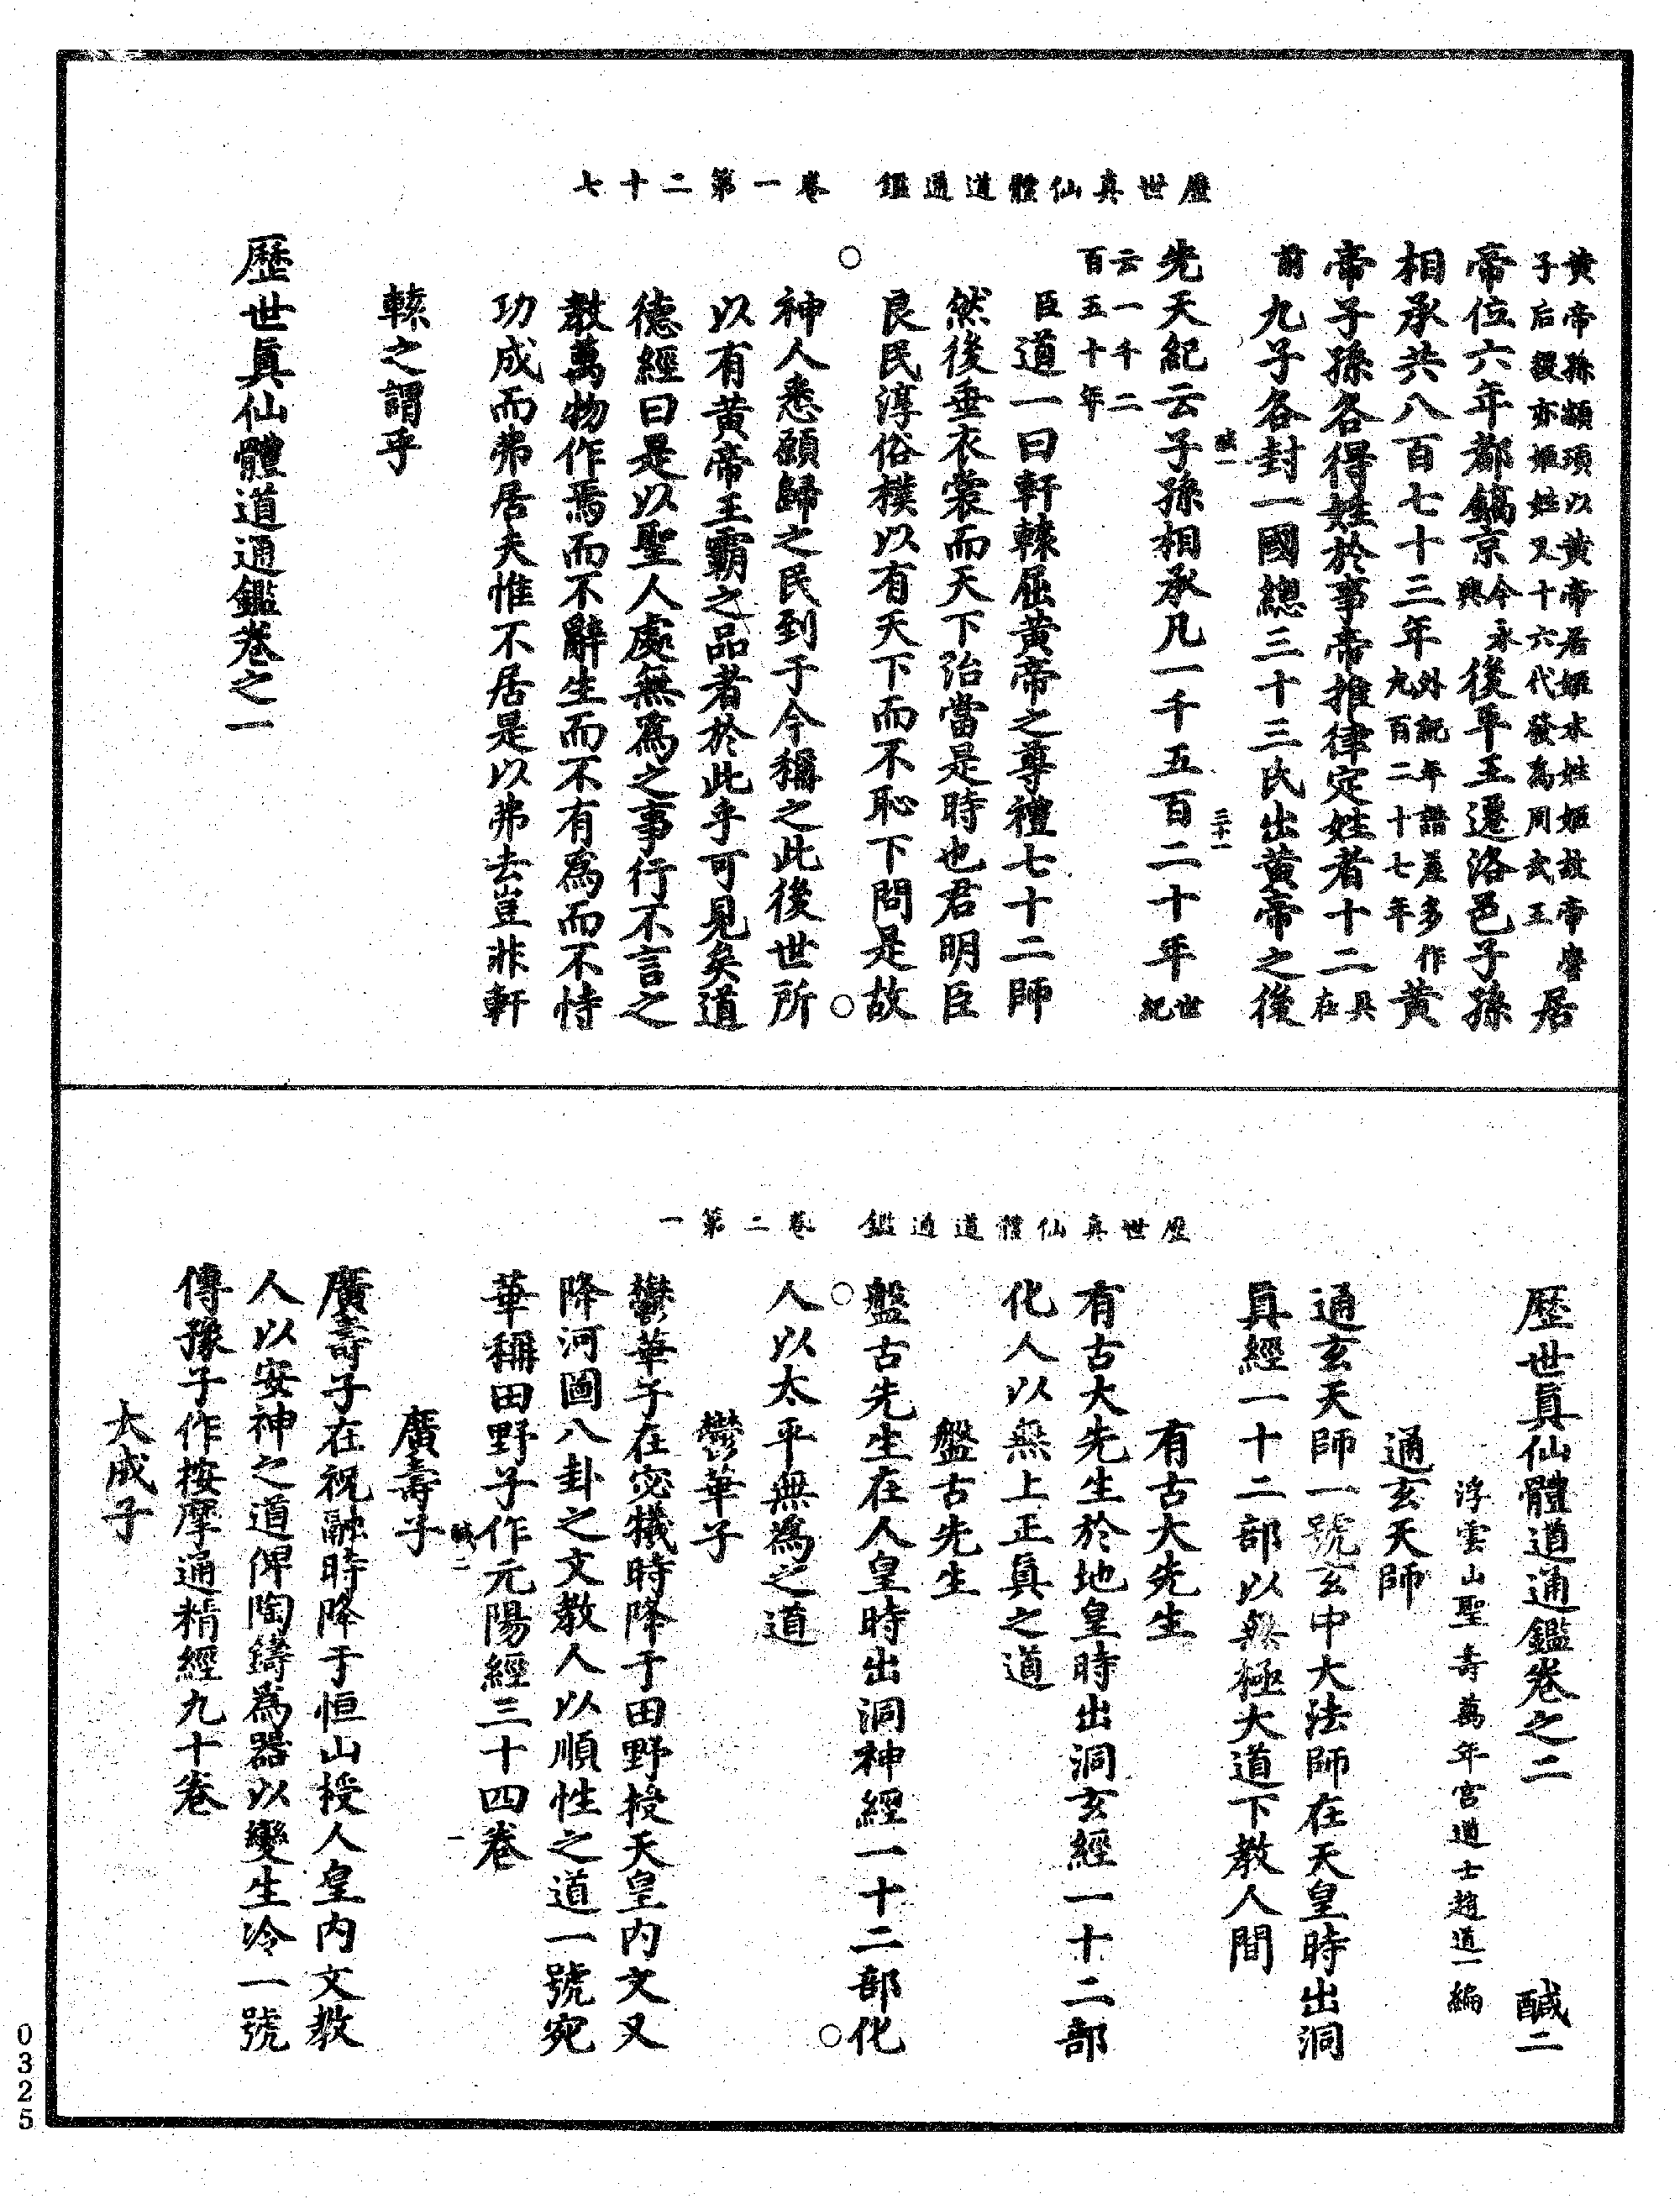 歷世真仙體道通鑑　卷一第二十七
黃帝孫顓頊以黃帝居姬水姓姬故帝嚳
子后稷亦姬姓又十六代發為周武王
居
帝位六年都鎬京今永興後平王遷洛邑子孫
相承共八百七十三年外紀年譜差多作九百二十七年黃
帝子孫各得姓於事帝推律定姓者十二具在
前九子各封一國總三十三氏出黃帝之後
醎一　三十一
先天紀云子孫相承凡一千五百二十年世紀
云一千二百五十年
臣道一曰軒轅屈黃帝之尊禮七十二師
然後垂衣裳而天下治當是時也君明臣
良民淳俗樸以有天下而不恥下問是故
神人悉願歸之民到于今稱之此後世所
以有黃帝王霸之品者於此乎可見矣道
德經曰是以聖人處無為之事行不言之
教萬物作焉而不辭生而不有為而不恃
功成而弗居夫惟不居是以弗去豈非軒
轅之謂乎
歷世真仙體道通鑑卷之一
歷世真仙體道通鑑　卷二第一
歷世真仙體道通鑑卷之二　醎二
浮雲山聖壽萬年宮道士趙道一編
通玄天師
通玄天師一號玄中大法師在天皇時出洞
真經一十二部以無極大道下教人間
有古大先生
有古大先生於地皇時出洞玄經一十二部
化人以無上正真之道
盤古先生
盤古先生在人皇時出洞神經一十二部化
人以太平無為之道
鬱華子
鬱華子在宓犧時降于田野授天皇內文又
降河圖八卦之文教人以順性之道一號宛
華稱田野子作元陽經三十四卷
醎二　一
廣壽子
廣壽子在祝融時降于恒山授人皇內文教
人以安神之道俾陶鑄為器以變生冷一號
傳豫子作按摩通精經九十卷
大成子
0325